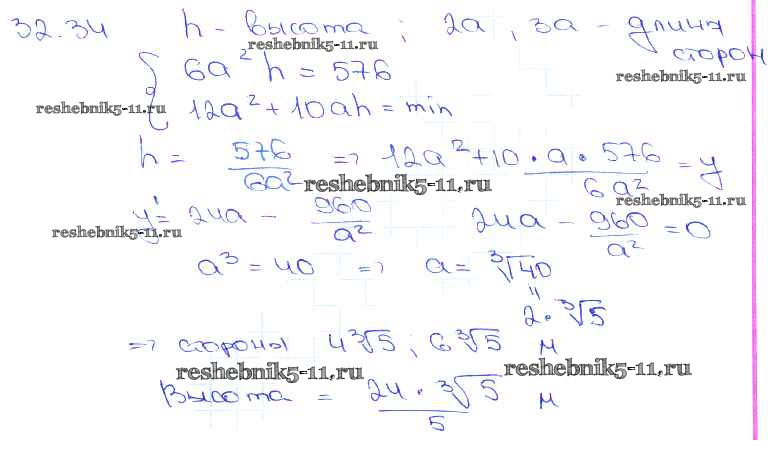 32.34 h - высота ; 2a , 3a - длина сторон
reshebnik5-11.ru
6a² h = 576
reshebnik5-11.ru
reshebnik5-11.ru
12a² + 10ah = min
h = 576/6a² => 12a² + 10 · a · 576/6a² = y
reshebnik5-11.ru
reshebnik5-11.ru
y' = 24a - 960/a² 24a - 960/a² = 0
reshebnik5-11.ru
a³ = 40 => a = ∛40
"
2 · ∛5
=> стороны 4∛5 ; 6∛5 м
reshebnik5-11.ru
reshebnik5-11.ru
Высота = 24 · ∛5/5 м